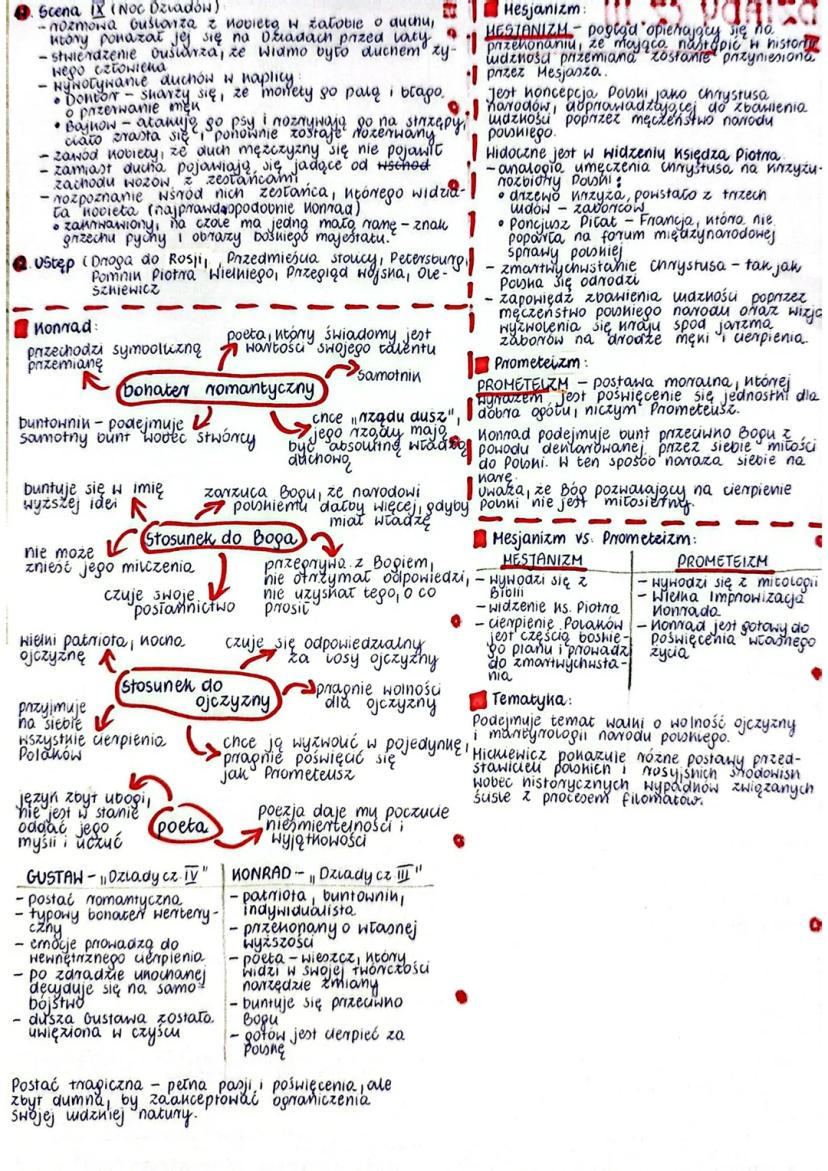 Scena IX (Noc Dziadów)
- rozmowa Guślarza z kobietą w żałobie o duchu,
który pokazał jej się na Dziadach przed laty
- stwierdzenie Guślarza, że widmo było duchem ży-
wego człowieka
- wywoływanie duchów w kaplicy:
• Doktor - skarży się, że monety go palą i błaga
o przerwanie mąk
• Bajkow - atakują go psy i rozrywają go na strzępy,
ciało zrasta się i ponownie zostaje rozerwany
- zawód kobiety, że duch mężczyzny się nie pojawił
- zamiast ducha pojawiają się jadące od wschod
zachodu wozów z zesłańcami
- rozpoznanie wśród nich zesłańca, którego widzia-
ła kobieta (najprawdopodobnie Konrad)
• zakrwawiony, na czole ma jedną małą ranę - znak
grzechu pychy i obrazy boskiego majestatu.
Ustęp (Droga do Rosji, Przedmieścia stolicy, Petersburg,
Pomnik Piotra Wielkiego, Przegląd wojska, Ole-
szkiewicz
Konrad:
przechodzi symboliczną
przemianę
poeta, który świadomy jest
wartości swojego talentu
samotnik
bohater romantyczny
buntownik - podejmuje
samotny bunt wobec stwórcy
chce „rządu dusz",
jego rządy mają
być absolutną władzą
duchową
buntuje się w imię
wyższej idei
zarzuca Bogu, że narodowi
polskiemu dałby więcej, gdyby
miał władzę
stosunek do Boga
nie może
znieść jego milczenia
czuje swoje
posłannictwo
przegrywa z Bogiem,
nie otrzymał odpowiedzi,
nie uzyskał tego, o co
prosił
wielki patriota, kocha
ojczyznę
czuje się odpowiedzialny
za losy ojczyzny
stosunek do
ojczyzny
pragnie wolności
dla ojczyzny
przyjmuje
na siebie
wszystkie cierpienia
Polaków
chce ją wyzwolić w pojedynkę,
pragnie poświęcić się
jak Prometeusz
język zbyt ubogi,
nie jest w stanie
oddać jego
myśli i uczuć
poeta
poezja daje mu poczucie
nieśmiertelności i
wyjątkowości
GUSTAW - „Dziady cz. IV"
- postać romantyczna
- typowy bohater wertery-
czny
- emocje prowadzą do
wewnętrznego cierpienia
- po zdradzie ukochanej
decyduje się na samo-
bójstwo
- dusza Gustawa została
uwięziona w czyścu
KONRAD - „Dziady cz. III"
- patriota, buntownik,
indywidualista
- przekonany o własnej
wyższości
- poeta - wieszcz, który
widzi w swojej twórczości
narzędzie zmiany
- buntuje się przeciwko
Bogu
- gotów jest cierpieć za
Polskę
Postać tragiczna - pełna pasji i poświęcenia, ale
zbyt dumna, by zaakceptować ograniczenia
swojej ludzkiej natury.
Mesjanizm:
MESJANIZM - pogląd opierający się na
przekonaniu, że mająca nastąpić w historii
ludzkości przemiana zostanie przyniesiona
przez Mesjasza.
Jest koncepcja Polski jako Chrystusa
narodów, doprowadzającej do zbawienia
ludzkości poprzez męczeństwo narodu
polskiego.
Widoczne jest w widzeniu Księdza Piotra.
- analogia umęczenia Chrystusa na krzyżu -
rozbiory Polski:
• drzewo krzyża, powstało z trzech
ludów - zaborców
• Poncjusz Piłat - Francja, która nie
poparła na forum międzynarodowej
sprawy polskiej
- zmartwychwstanie Chrystusa - tak jak
Polska się odrodzi
- zapowiedź zbawienia ludzkości poprzez
męczeństwo polskiego narodu oraz wizja
wyzwolenia się kraju spod jarzma
zaborów na drodze męki i cierpienia.
Prometeizm:
PROMETEIZM - postawa moralna, której
wyrazem jest poświęcenie się jednostki dla
dobra ogółu, niczym Prometeusz.
Konrad podejmuje bunt przeciwko Bogu z
powodu deklarowanej przez siebie miłości
do Polski. W ten sposób naraża siebie na
karę.
Uważa, że Bóg pozwalający na cierpienie
Polski nie jest miłosierny.
Mesjanizm vs. Prometeizm:
MESJANIZM
- wywodzi się z
Biblii
- widzenie ks. Piotra
- cierpienie Polaków
jest częścią boskie-
go planu i prowadzi
do zmartwychwsta-
nia
PROMETEIZM
- wywodzi się z mitologii
- Wielka Improwizacja
Konrada
- Konrad jest gotowy do
poświęcenia własnego
życia
Tematyka:
Podejmuje temat walki o wolność ojczyzny
i martyrologii narodu polskiego.
Mickiewicz pokazuje różne postawy przed-
stawicieli polskich i rosyjskich środowisk
wobec historycznych wypadków związanych
ściśle z procesem filomatów.